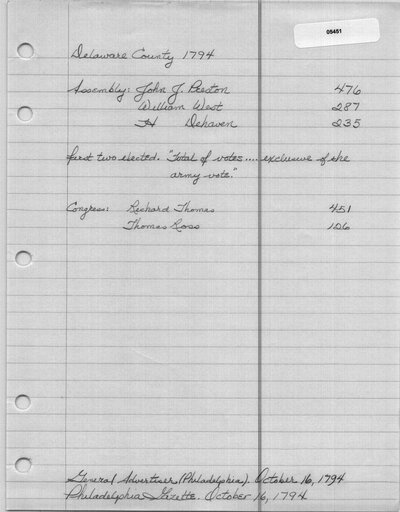 05451
Delaware County 1794
Assembly: John J. Preston 476
William West 287
H Dehaven 235
first two elected. "Total of votes .... exclusive of the
army vote."
Congress: Richard Thomas 451
Thomas Ross 106
General Advertiser (Philadelphia). October 16, 1794
Philadelphia Gazette. October 16, 1794